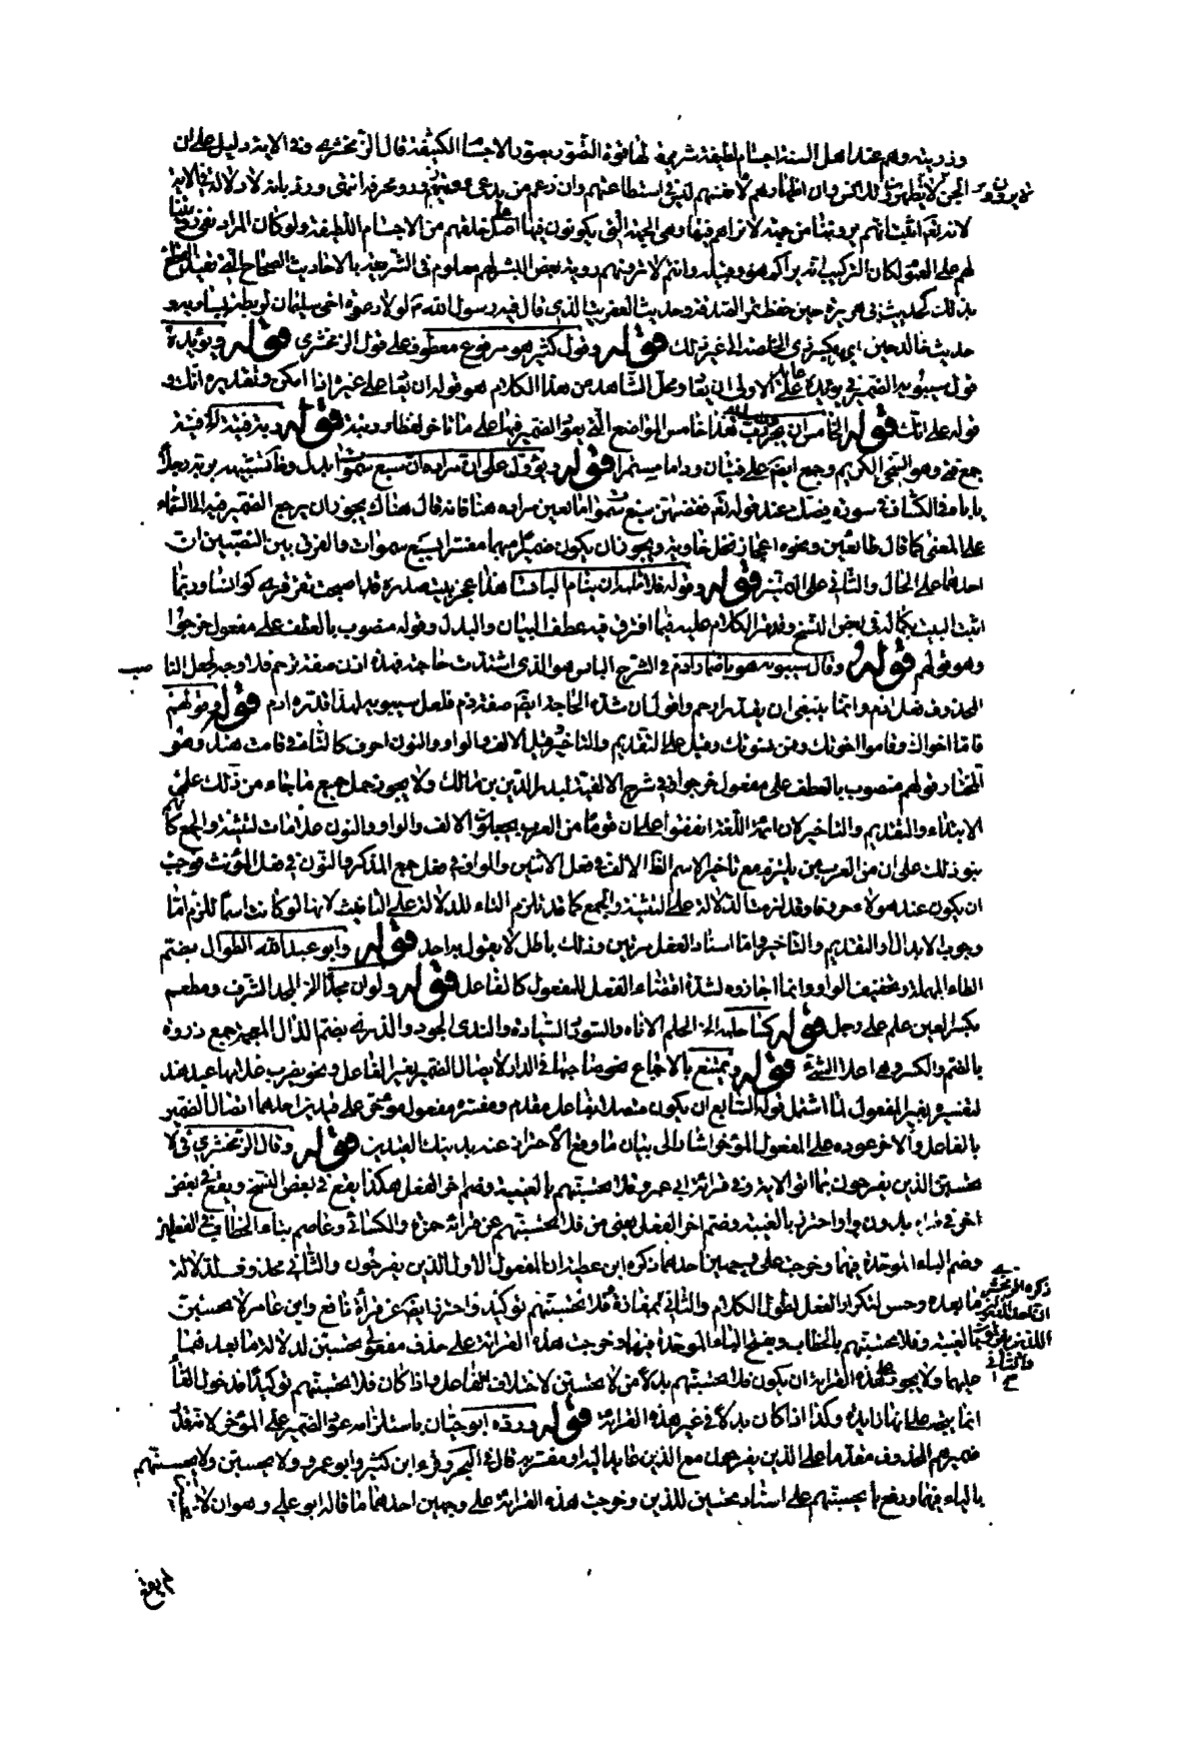 وذريته وهم عند اهل السنة اجسام لطيفة شريرة لها قوة التصور بصور الاجسام الكثيفة قال الزمخشري وفي الاية دليل على ان
الجن لا يظهرون للانس وان اظهارهم لانفسهم ليس في استطاعتهم وان زعم من يدعي رؤيتهم زور ومخرقة انتهى ورد بانه لا دلالة في الاية
لانه تعالى اثبت انهم يروننا من جهة لا نراهم فيها وهي الجهة التي يكونون فيها على اصل خلقهم من الاجسام اللطيفة ولو كان المراد نفي رؤيتنا
لهم على العموم لكان التركيب انه يراكم هو وقبيله وانتم لا ترونهم رؤية بعض البشر لهم معلوم في الشريعة بالاحاديث الصحاح
بذلك كحديث ابي هريرة حين حفظ تمر الصدقة وحديث العفريت الذي قال فيه رسول الله لولا دعوة اخي سليمان لربطته
حديث خالد حين الى غير ذلك قوله وقول كثير هو مرفوع معطوف على قول الزمخشري قوله ويؤيده
قول سيبويه الضمير في يؤيده عائد على الاولى ان يقاس ومحل الشاهد من هذا الكلام هو قوله ان يقاس على غيره اذا امكن وتقديره
قوله على انك قوله الخامس ان يجر برب هذا خامس المواضع التي يعود الضمير فيها على ما تأخر لفظا ورتبة قوله وربه فتية الفتية
جمع فتى وهو السخي الكريم وجمع ايضا على فتيان قوله ويؤول على ان مراده ان سبع سموات بدل وظاهر تشبيهه بربه رجلا
يأباه في الكشاف في سورة فصلت عند قوله تعالى فقضاهن سبع سموات ما يعين مراده هنا فانه قال هناك يجوز ان يرجع الضمير فيه الى السماء
على المعنى كما قال طائعين ونحوه اعجاز نخل خاوية ويجوز ان يكون ضميرا مبهما مفسرا بسبع سموات والفرق بين النصبين ان
احدهما على الحال والثاني على التمييز قوله وقوله فلا تلمه ان ينام البائسا هذا عجز بيت صدره قد اصبحت بقرقرى كوانسا وربما
اثبت البيت بكماله في بعض النسخ وقد مر الكلام عليه فيما افترق فيه عطف البيان والبدل وقوله منصوب بالعطف على مفعول خرجوا
وهو قولهم قوله وقال سيبويه هو باضمار اذم في الشرح البائس هو الذي اشتدت حاجته فهذه اذن صفة ترحم فلا وجه لجعل الناصب
المحذوف فعل الذم وانما ينبغي ان يقدر ارحم واقول ان شدة الحاجة ايضا صفة ذم فلعل سيبويه لهذا قدره اذم قوله وقولهم
قاما اخواك وقاموا اخوتك وقمن نسوتك وقيل على التقديم والتأخير وقيل الالف والواو والنون احرف كالتاء في قامت هند وهو
المختار قولهم منصوب بالعطف على مفعول خرجوا في شرح الالفية لبدر الدين بن مالك ولا يجوز حمل جميع ما جاء من ذلك على
الابتداء والتقديم والتاخير لان ائمة اللغة اتفقوا على ان قوما من العرب يجعلون الالف والواو والنون علامات لتثنية والجمع كأنهم
بنو ذلك على ان من العرب من يلتزم مع تأخير الاسم الظاهر الالف في فعل الاثنين والواو في فعل جمع المذكر والنون في فعل جمع المؤنث فوجب
ان يكون عند هولاء حروفا وقد لزمت الدلالة على التثنية والجمع كما قد تلزم التاء للدلالة على التانيث لانها لو كانت اسما للزم اما
وجوب الابدال او التقديم والتأخير واما اسناد الفعل مرتين وذلك باطل لا يقول به احد قوله وابو عبدالله الطوال بضم
الطاء المهملة وتخفيف الواو وانما اجازوه لشدة اقتضاء الفعل للمفعول كالفاعل قوله ولو ان مجدا الخ المجد الشرف ومطعم
بكسر العين علم على رجل قوله كسا حلمه الخ الحلم الاناة والسودد السيادة والندى الجود والذرى بضم الذال المعجمة جمع ذروة
بالضم والكسر وهي اعلا الشئ قوله ويمتنع بالاجماع نحو صاحبها في الدار لاتصال الضمير بغير الفاعل ونحو ضرب غلامها عبد هند
لتفسيره بغير المفعول لما اشتمل قوله السابع ان يكون متصلا بفاعل مقدم ومفسره مفعول مؤخر على قيدين احدهما اتصال الضمير
بالفاعل والاخر عوده على المفعول المؤخر اشار الى بيان ما وقع الاحتراز عنه بذينك القيدين قوله وقال الزمخشري في لا
تحسبن الذين يفرحون بما اتوا الاية في قرائة ابي عمرو فلا يحسبنهم بالغيبة وضم اخر الفعل هكذا يقع في بعض النسخ ويقع في بعض
اخر في قراءة بدون واو احترز بالغيبة وضم اخر الفعل يعني من فلا يحسبنهم عن قرائة حمزة والكسائي وعاصم بتاء الخطاب في الفعلين
وضم الباء الموحدة فيهما وخرجت على وجهين احدهما ذكره ابن عطية ان المفعول الاول الذين يفرحون والثاني محذوف لدلالة
ما بعده وحسن تكرار الفعل لطول الكلام والثاني بمفازة وفلا تحسبنهم توكيد واحترز ايضا عن قرأة نافع وابن عامر لا يحسبن
بالغيبة وفلا تحسبنهم بالخطاب وبفتح الباء الموحدة فيهما وخرجت هذه القرائة على حذف مفعولي يحسبن لدلالة ما بعدهما
عليهما ولا يجوز على هذه القرائة ان يكون فلا تحسبنهم بدلا من لا يحسبن لاختلاف الفاعل واذا كان فلا تحسبنهم توكيدا فدخول الفاء
انما يتجه على انها زائدة وكذا اذا كان بدلا في غير هذه القرائة قوله ورده ابو حيان باستلزامه عود الضمير على المؤخر
ضميرهم المحذوف مقدما على الذين يفرحون مع الذين عايد اليه ومفسر به قال في البحر وقرء ابن كثير وابو عمرو ولا يحسبن ولا يحسبنهم
بالياء فيهما ورفع باء يحسبنهم على اسناد يحسبن للذين وخرجت هذه القرائة على وجهين احدهما ما قاله ابو علي وهو ان لا